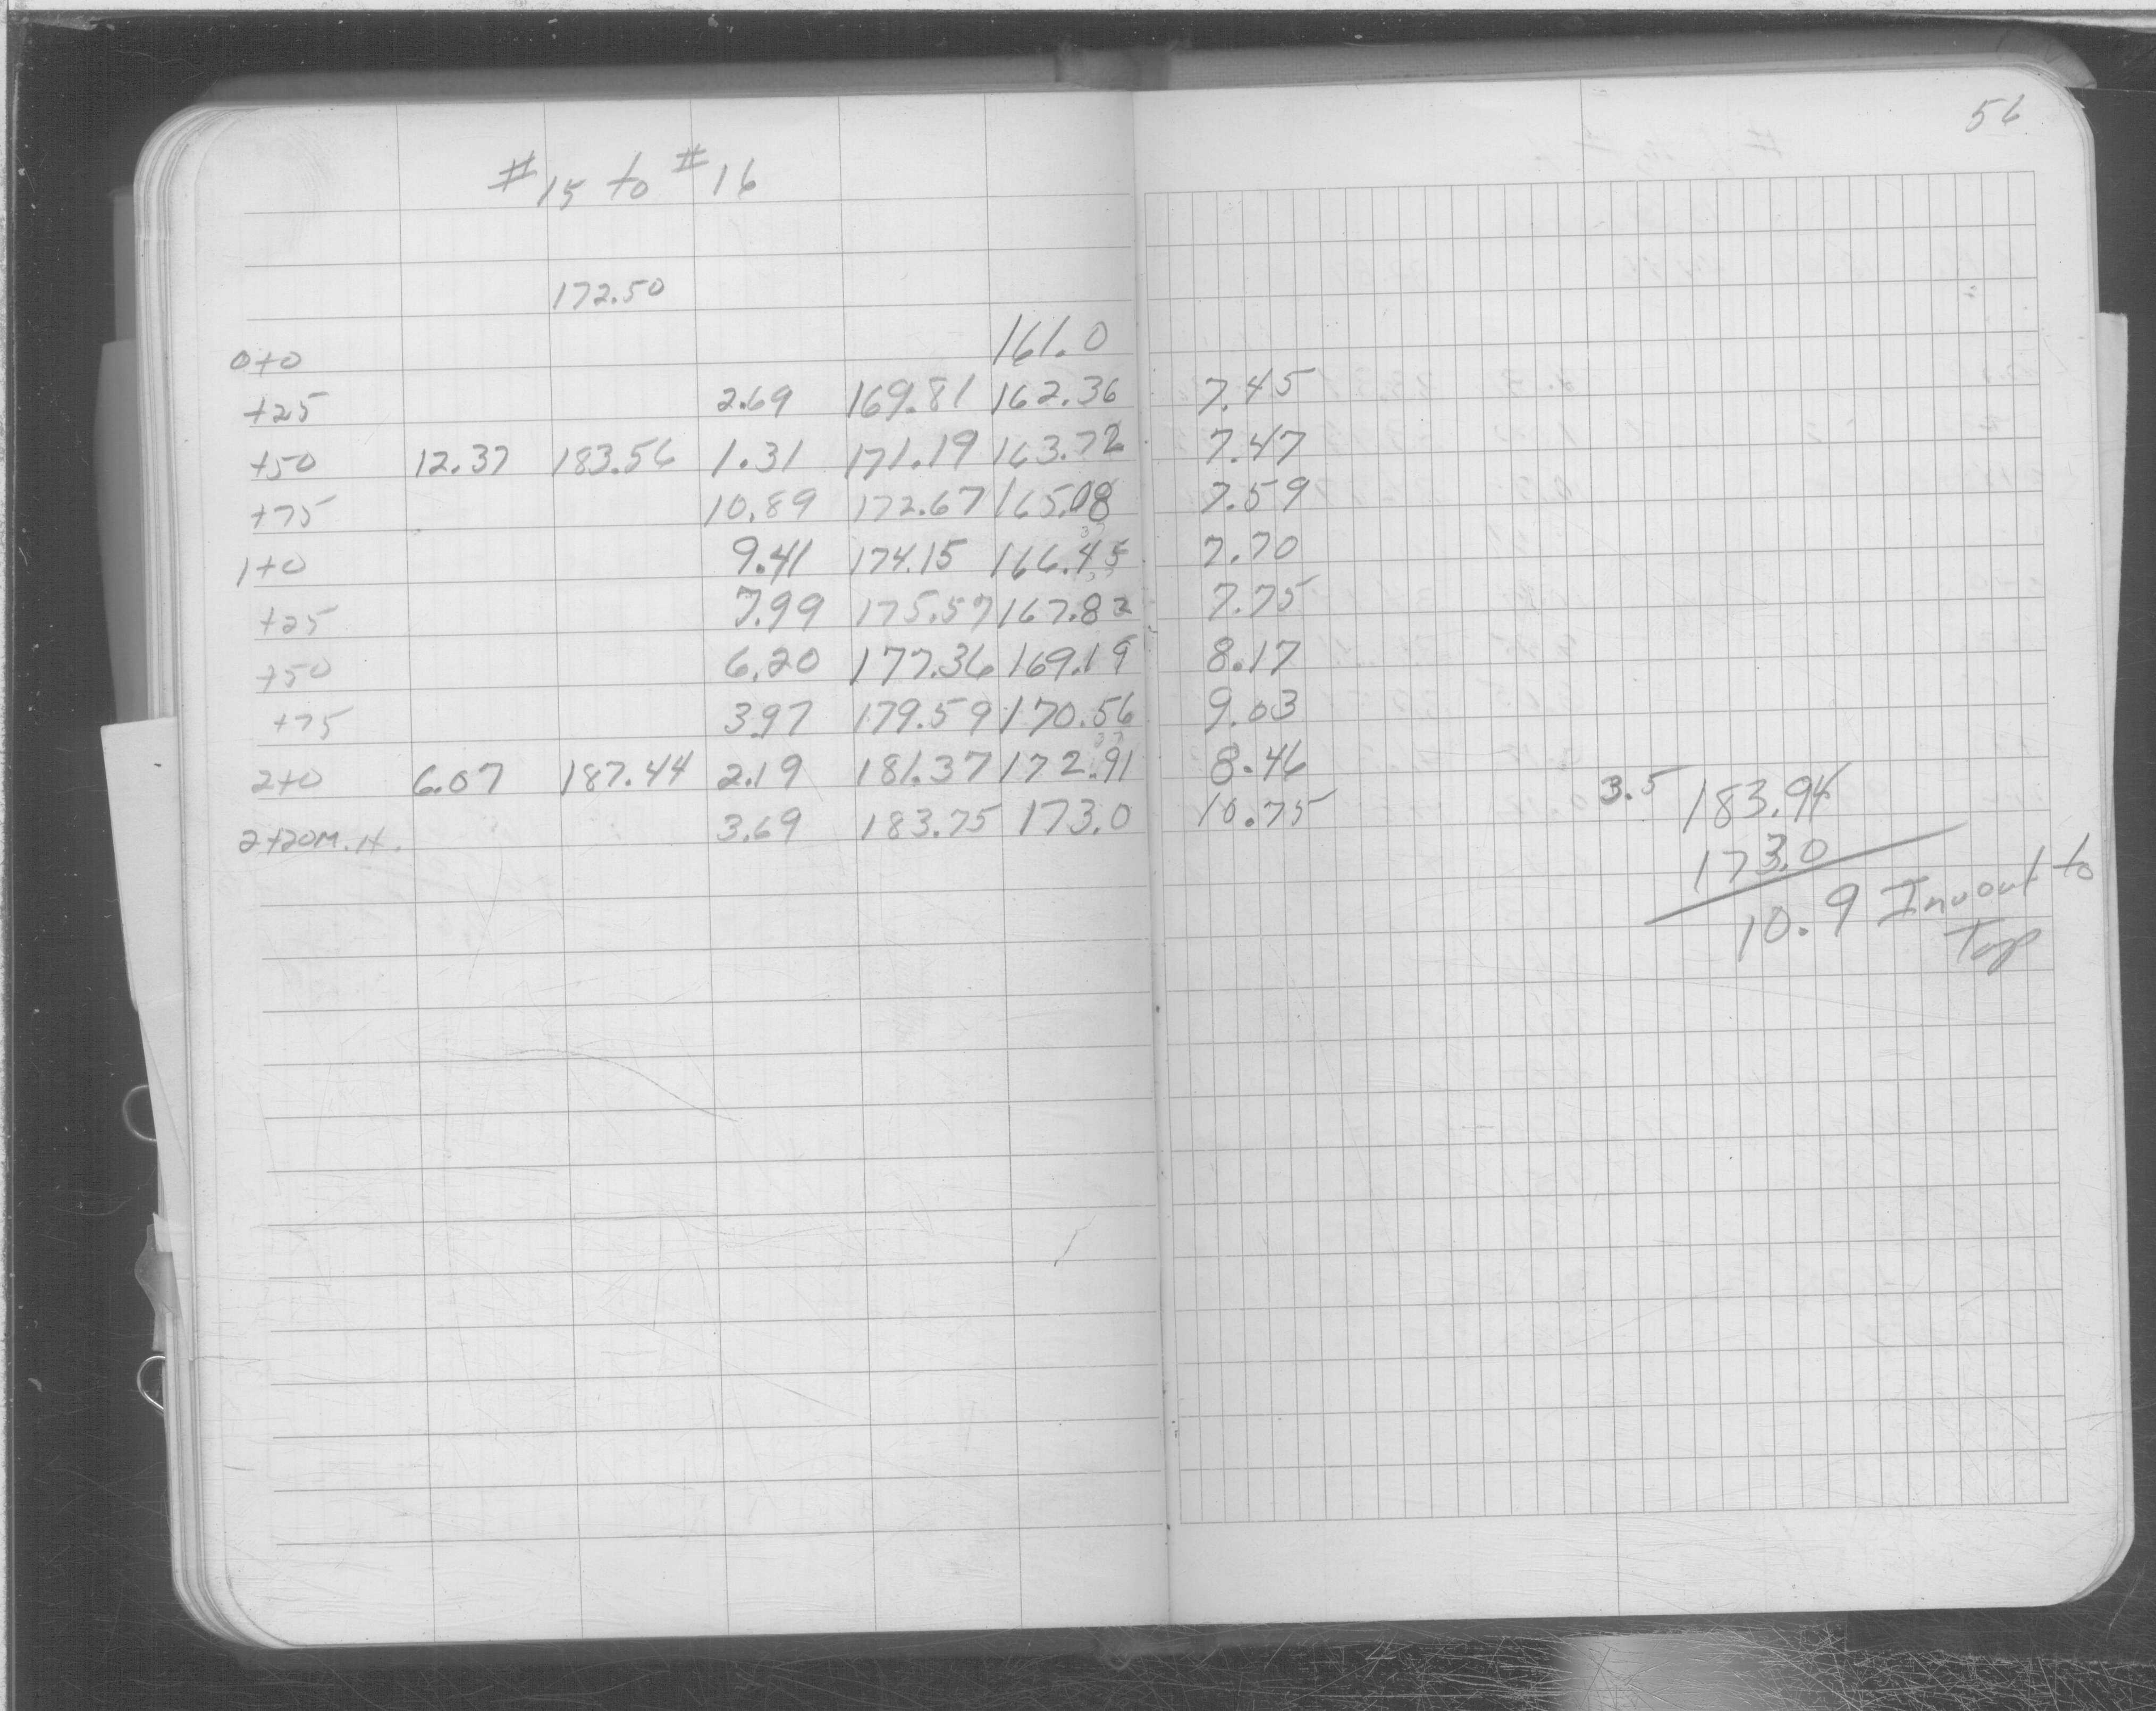 56
#15 to #16
172.50
0+0 161.0
+25 2.69 169.81 162.36 7.45
+50 12.37 183.56 1.31 171.19 163.72 7.47
+75 10.89 172.67 165.08 7.59
1+0 9.41 174.15 166.45 7.70
+25 7.99 175.57 167.82 7.75
+50 6.20 177.36 169.19 8.17
+75 3.97 179.59 170.56 9.03
2+0 6.07 187.44 2.19 181.37 172.91 8.46
2+20 M.H. 3.69 183.75 173.0 10.75
3.5 183.94
173.0
10.9 Inv out to
Top